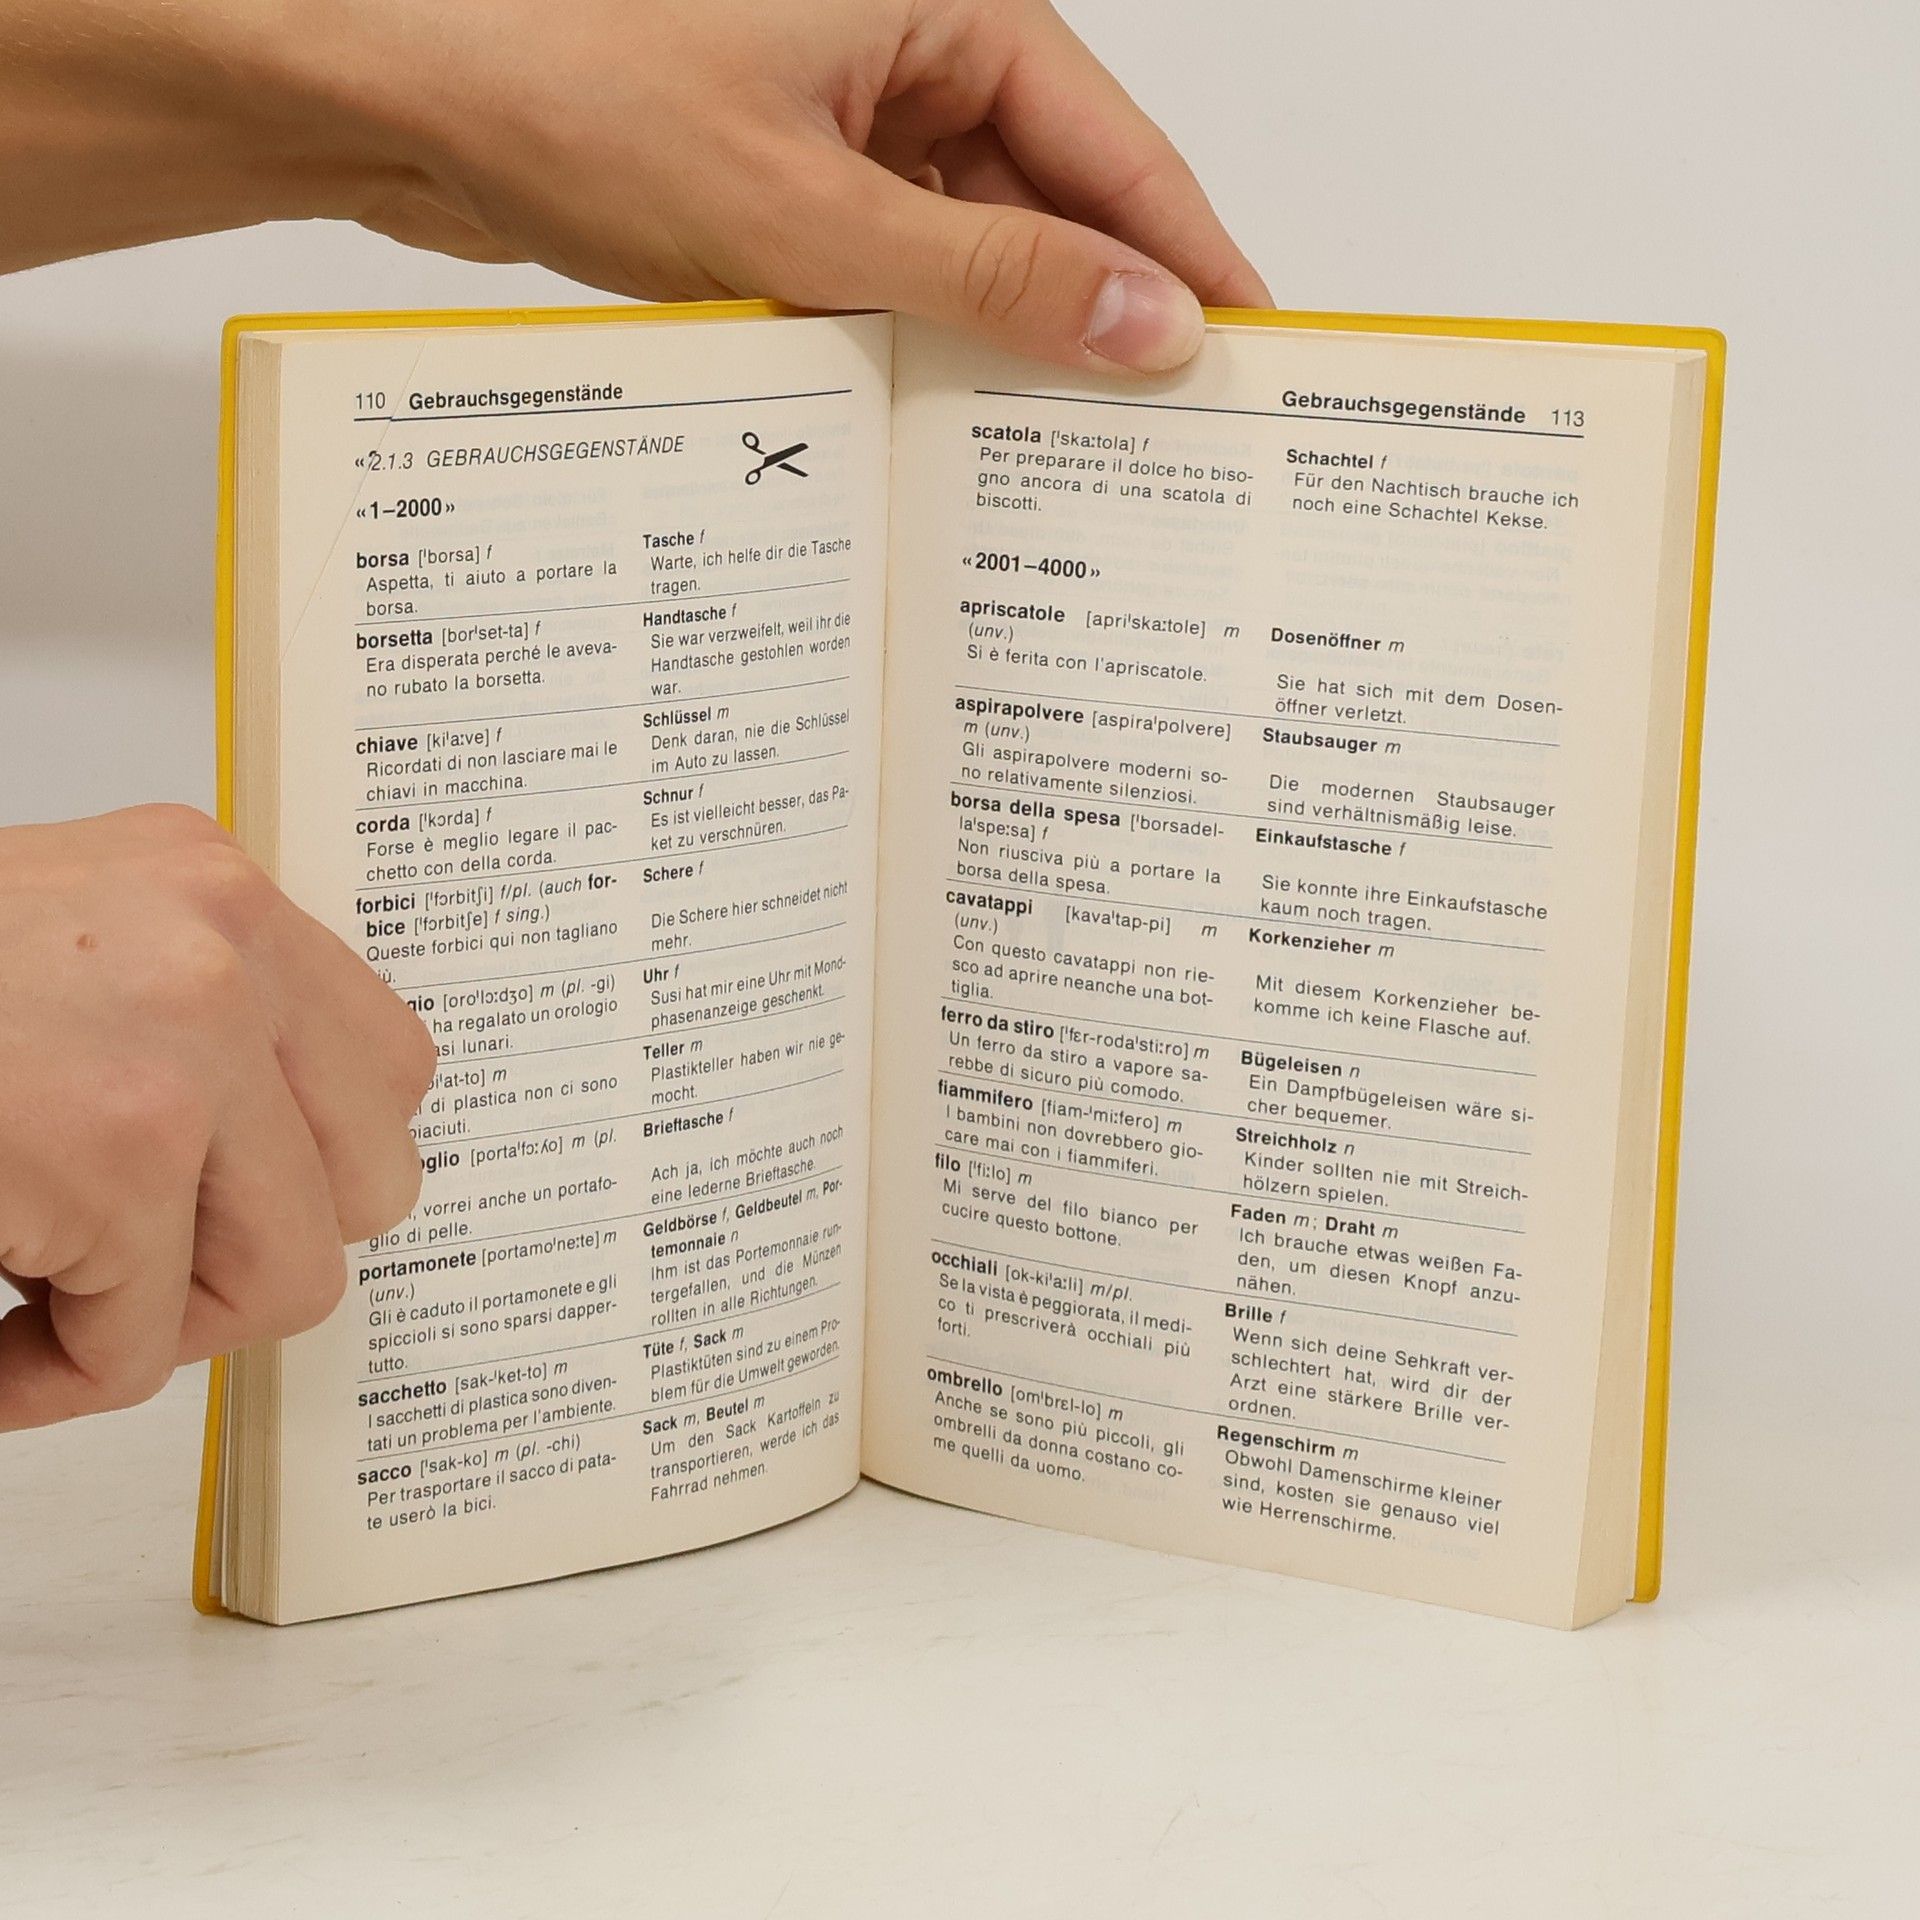 110 Gebrauchsgegenstände
«2.1.3 GEBRAUCHSGEGENSTÄNDE
«1–2000»
borsa ['borsa] f
Aspetta, ti aiuto a portare la
borsa.
Tasche f
Warte, ich helfe dir die Tasche
tragen.
borsetta [bor'set-ta] f
Era disperata perché le aveva-
no rubato la borsetta.
Handtasche f
Sie war verzweifelt, weil ihr die
Handtasche gestohlen worden
war.
chiave [ki'a:ve] f
Ricordati di non lasciare mai le
chiavi in macchina.
Schlüssel m
Denk daran, nie die Schlüssel
im Auto zu lassen.
corda ['kɔrda] f
Forse è meglio legare il pac-
chetto con della corda.
Schnur f
Es ist vielleicht besser, das Pa-
ket zu verschnüren.
forbici ['fɔrbitʃi] f/pl. (auch for-
bice ['fɔrbitʃe] f sing.)
Queste forbici qui non tagliano
Schere f
Die Schere hier schneidet nicht
mehr.
[oro'lɔ:dʒo] m (pl. -gi)
ha regalato un orologio
lunari.
Uhr f
Susi hat mir eine Uhr mit Mond-
phasenanzeige geschenkt.
m
di plastica non ci sono
Teller m
Plastikteller haben wir nie ge-
mocht.
[porta'fɔ:ʎo] m (pl.
vorrei anche un portafo-
glio di pelle.
Brieftasche f
Ach ja, ich möchte auch noch
eine lederne Brieftasche.
portamonete [portamo'ne:te] m
(unv.)
Gli è caduto il portamonete e gli
spiccioli si sono sparsi dapper-
tutto.
Geldbörse f, Geldbeutel m, Por-
temonnaie n
Ihm ist das Portemonnaie run-
tergefallen, und die Münzen
rollten in alle Richtungen.
sacchetto [sak-'ket-to] m
I sacchetti di plastica sono diven-
tati un problema per l'ambiente.
Tüte f, Sack m
Plastiktüten sind zu einem Pro-
blem für die Umwelt geworden.
sacco ['sak-ko] m (pl. -chi)
Per trasportare il sacco di pata-
te userò la bici.
Sack m, Beutel m
Um den Sack Kartoffeln zu
transportieren, werde ich das
Fahrrad nehmen.
Gebrauchsgegenstände 113
scatola ['ska:tola] f
Per preparare il dolce ho biso-
gno ancora di una scatola di
biscotti.
Schachtel f
Für den Nachtisch brauche ich
noch eine Schachtel Kekse.
«2001–4000»
apriscatole [apri'ska:tole] m
(unv.)
Si è ferita con l'apriscatole.
Dosenöffner m
Sie hat sich mit dem Dosen-
öffner verletzt.
aspirapolvere [aspira'polvere]
m (unv.)
Gli aspirapolvere moderni so-
no relativamente silenziosi.
Staubsauger m
Die modernen Staubsauger
sind verhältnismäßig leise.
borsa della spesa ['borsadel-
la'spe:sa] f
Non riusciva più a portare la
borsa della spesa.
Einkaufstasche f
Sie konnte ihre Einkaufstasche
kaum noch tragen.
cavatappi [kava'tap-pi] m
(unv.)
Con questo cavatappi non rie-
sco ad aprire neanche una bot-
tiglia.
Korkenzieher m
Mit diesem Korkenzieher be-
komme ich keine Flasche auf.
ferro da stiro ['fɛr-roda'sti:ro] m
Un ferro da stiro a vapore sa-
rebbe di sicuro più comodo.
Bügeleisen n
Ein Dampfbügeleisen wäre si-
cher bequemer.
fiammifero [fiam-'mi:fero] m
I bambini non dovrebbero gio-
care mai con i fiammiferi.
Streichholz n
Kinder sollten nie mit Streich-
hölzern spielen.
filo ['fi:lo] m
Mi serve del filo bianco per
cucire questo bottone.
Faden m; Draht m
Ich brauche etwas weißen Fa-
den, um diesen Knopf anzu-
nähen.
occhiali [ok-ki'a:li] m/pl.
Se la vista è peggiorata, il medi-
co ti prescriverà occhiali più
forti.
Brille f
Wenn sich deine Sehkraft ver-
schlechtert hat, wird dir der
Arzt eine stärkere Brille ver-
ordnen.
ombrello [om'brɛl-lo] m
Anche se sono più piccoli, gli
ombrelli da donna costano co-
me quelli da uomo.
Regenschirm m
Obwohl Damenschirme kleiner
sind, kosten sie genauso viel
wie Herrenschirme.